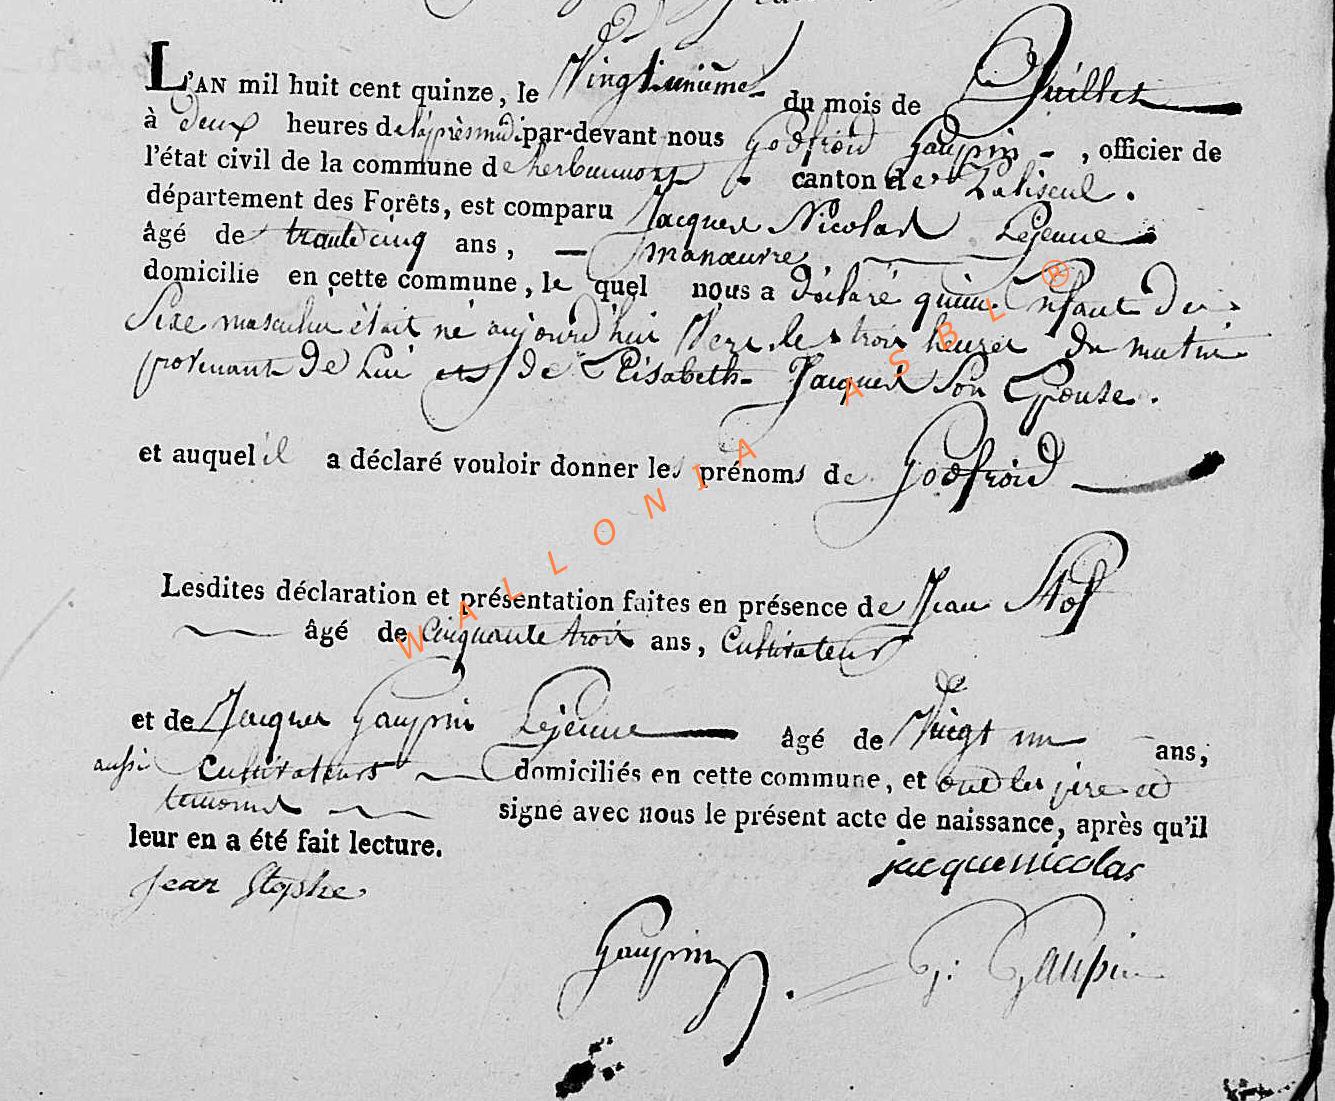 L'AN mil huit cent quinze, le Vingtunième du mois de Juillet
à deux heures de l'aprèsmidi par-devant nous Godfroid Gaupin, officier de
l'état civil de la commune de herbeumont canton de Paliseul.
département des Forêts, est comparu Jacques Nicolas Lejeune
âgé de trente cinq ans, manœuvre
domicilié en cette commune, le quel nous a déclaré qu'un Enfant du
Sixe masculin était né aujourd'hui Vers les trois heures du matin
provenant de Lui et de Elisabeth Jacques Son Epouse.
et auquel il a déclaré vouloir donner les prénoms de Godfroid
Lesdites déclaration et présentation faites en présence de Jean Stof
âgé de Cinquante trois ans, Cultivateur
et de Jacques Gaupin Lejeune âgé de Vingt un ans,
aussi Cultivateurs domiciliés en cette commune, et ont les père et
temoins signé avec nous le présent acte de naissance, après qu'il
leur en a été fait lecture.
jacque nicolas
Jean Stophe
Gaupin
G: Gaupin
WALLONIA ASBL ®